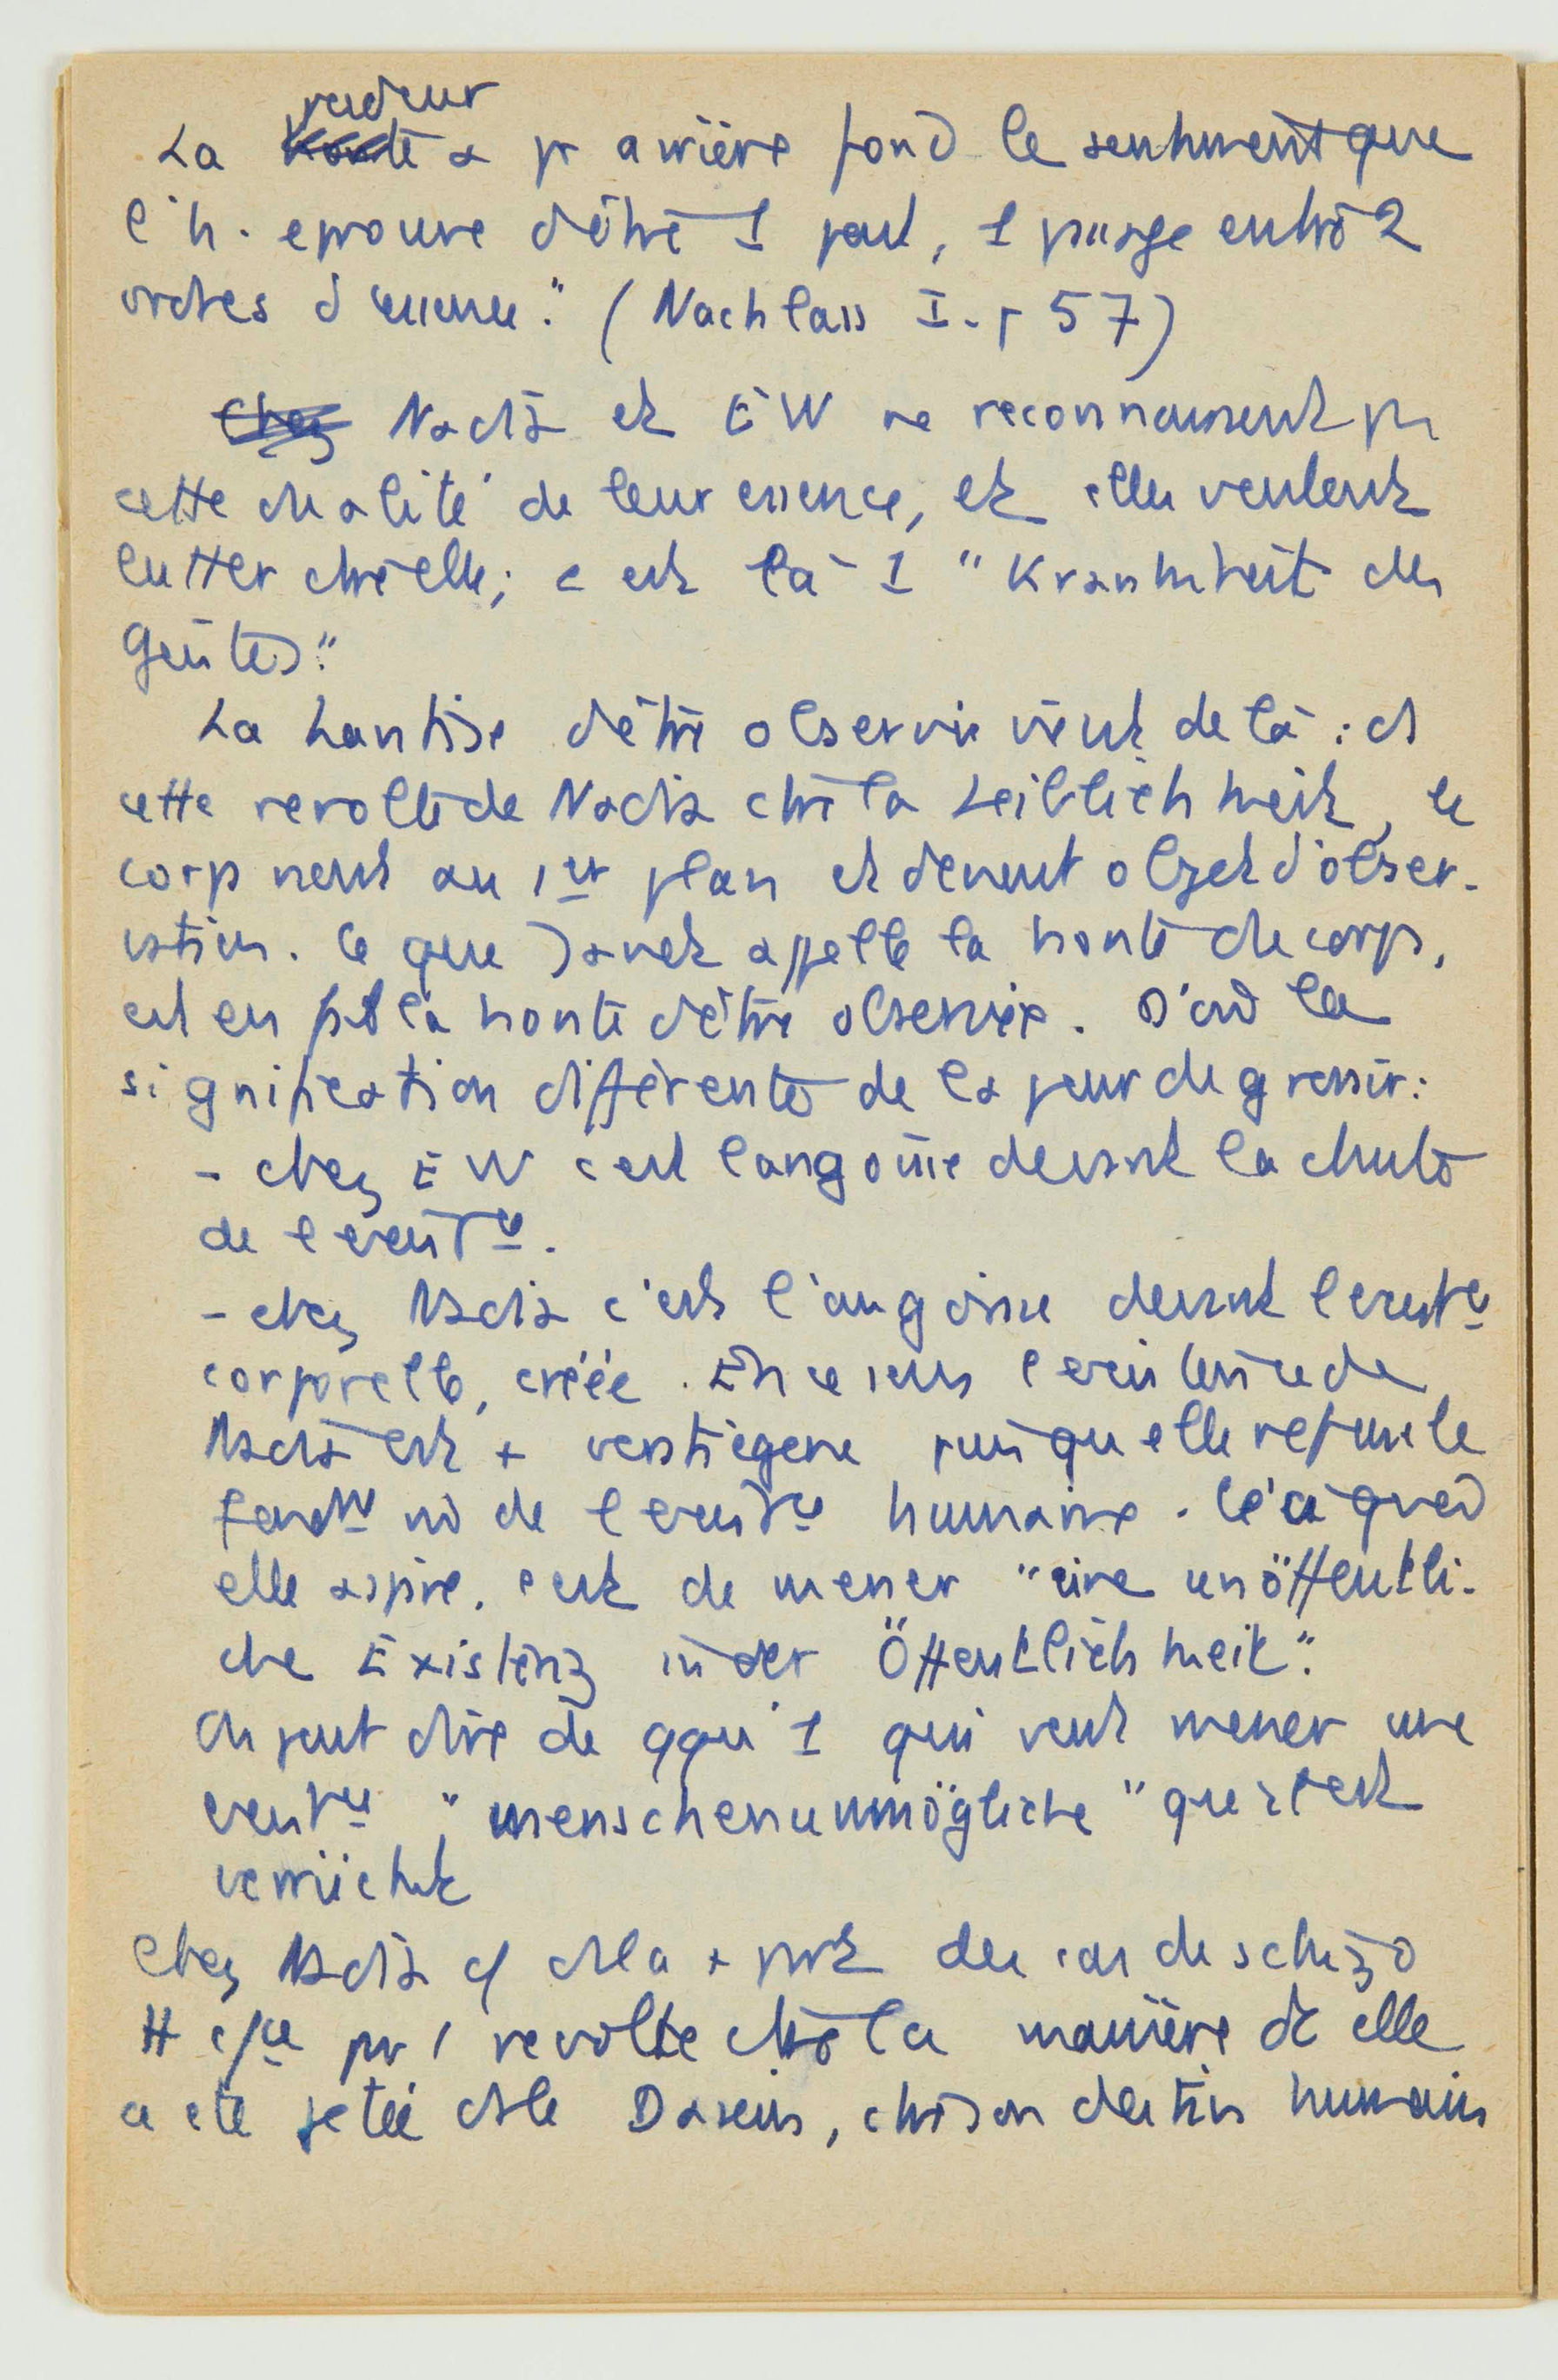 La pudeur a pr arrière fond le sentiment que
l'h. eprouve d'être 1 pont, 1 passage entre 2
ordres d'essence." (Nachlass I. p 57)
Nadia et EW ne reconnaissent pas
cette dualité de leur essence, et elles veulent
lutter ctre elle; c est là 1 "Krankheit des
Geistes".
La hantise d'être observée vient de là : ds
cette revolte de Nadia ctre la Leiblichkeit, le
corps vient au 1er plan et devient objet d'obser-
vation. Ce que Janet appelle la honte du corps,
est en fait la honte d'être observée. D'où la
signification différente de la peur de grossir:
- chez EW c'est l'angoisse devant la chute
de l existce.
- chez Nadia c'est l'angoisse devant l existce
corporelle, créée. En ce sens l existence de
Nadia est + verstiegene puisqu elle refuse le
fondt de l existce humaine. Ce à quoi
elle aspire, c est de mener "eine unöffentli-
che Existenz in der Öffentlichkeit".
On peut dire de qqu'1 qui veut mener une
existce "menschenunmögliche" qu'il est
verrückt
Chez Nadia c/ ds la + part des cas de schizo
tt c/ce par 1 revolte ctre la manière dt elle
a été jetée ds le Dasein, ctre son destin humain